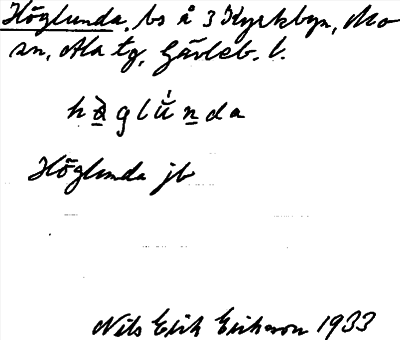 Höglunda, bs å 3 Kyrkbyn, Mo
sn, Ala tg, Gävleb. l.
hö̀glún̲da
Höglunda jb
Nils Erik Eriksson 1933